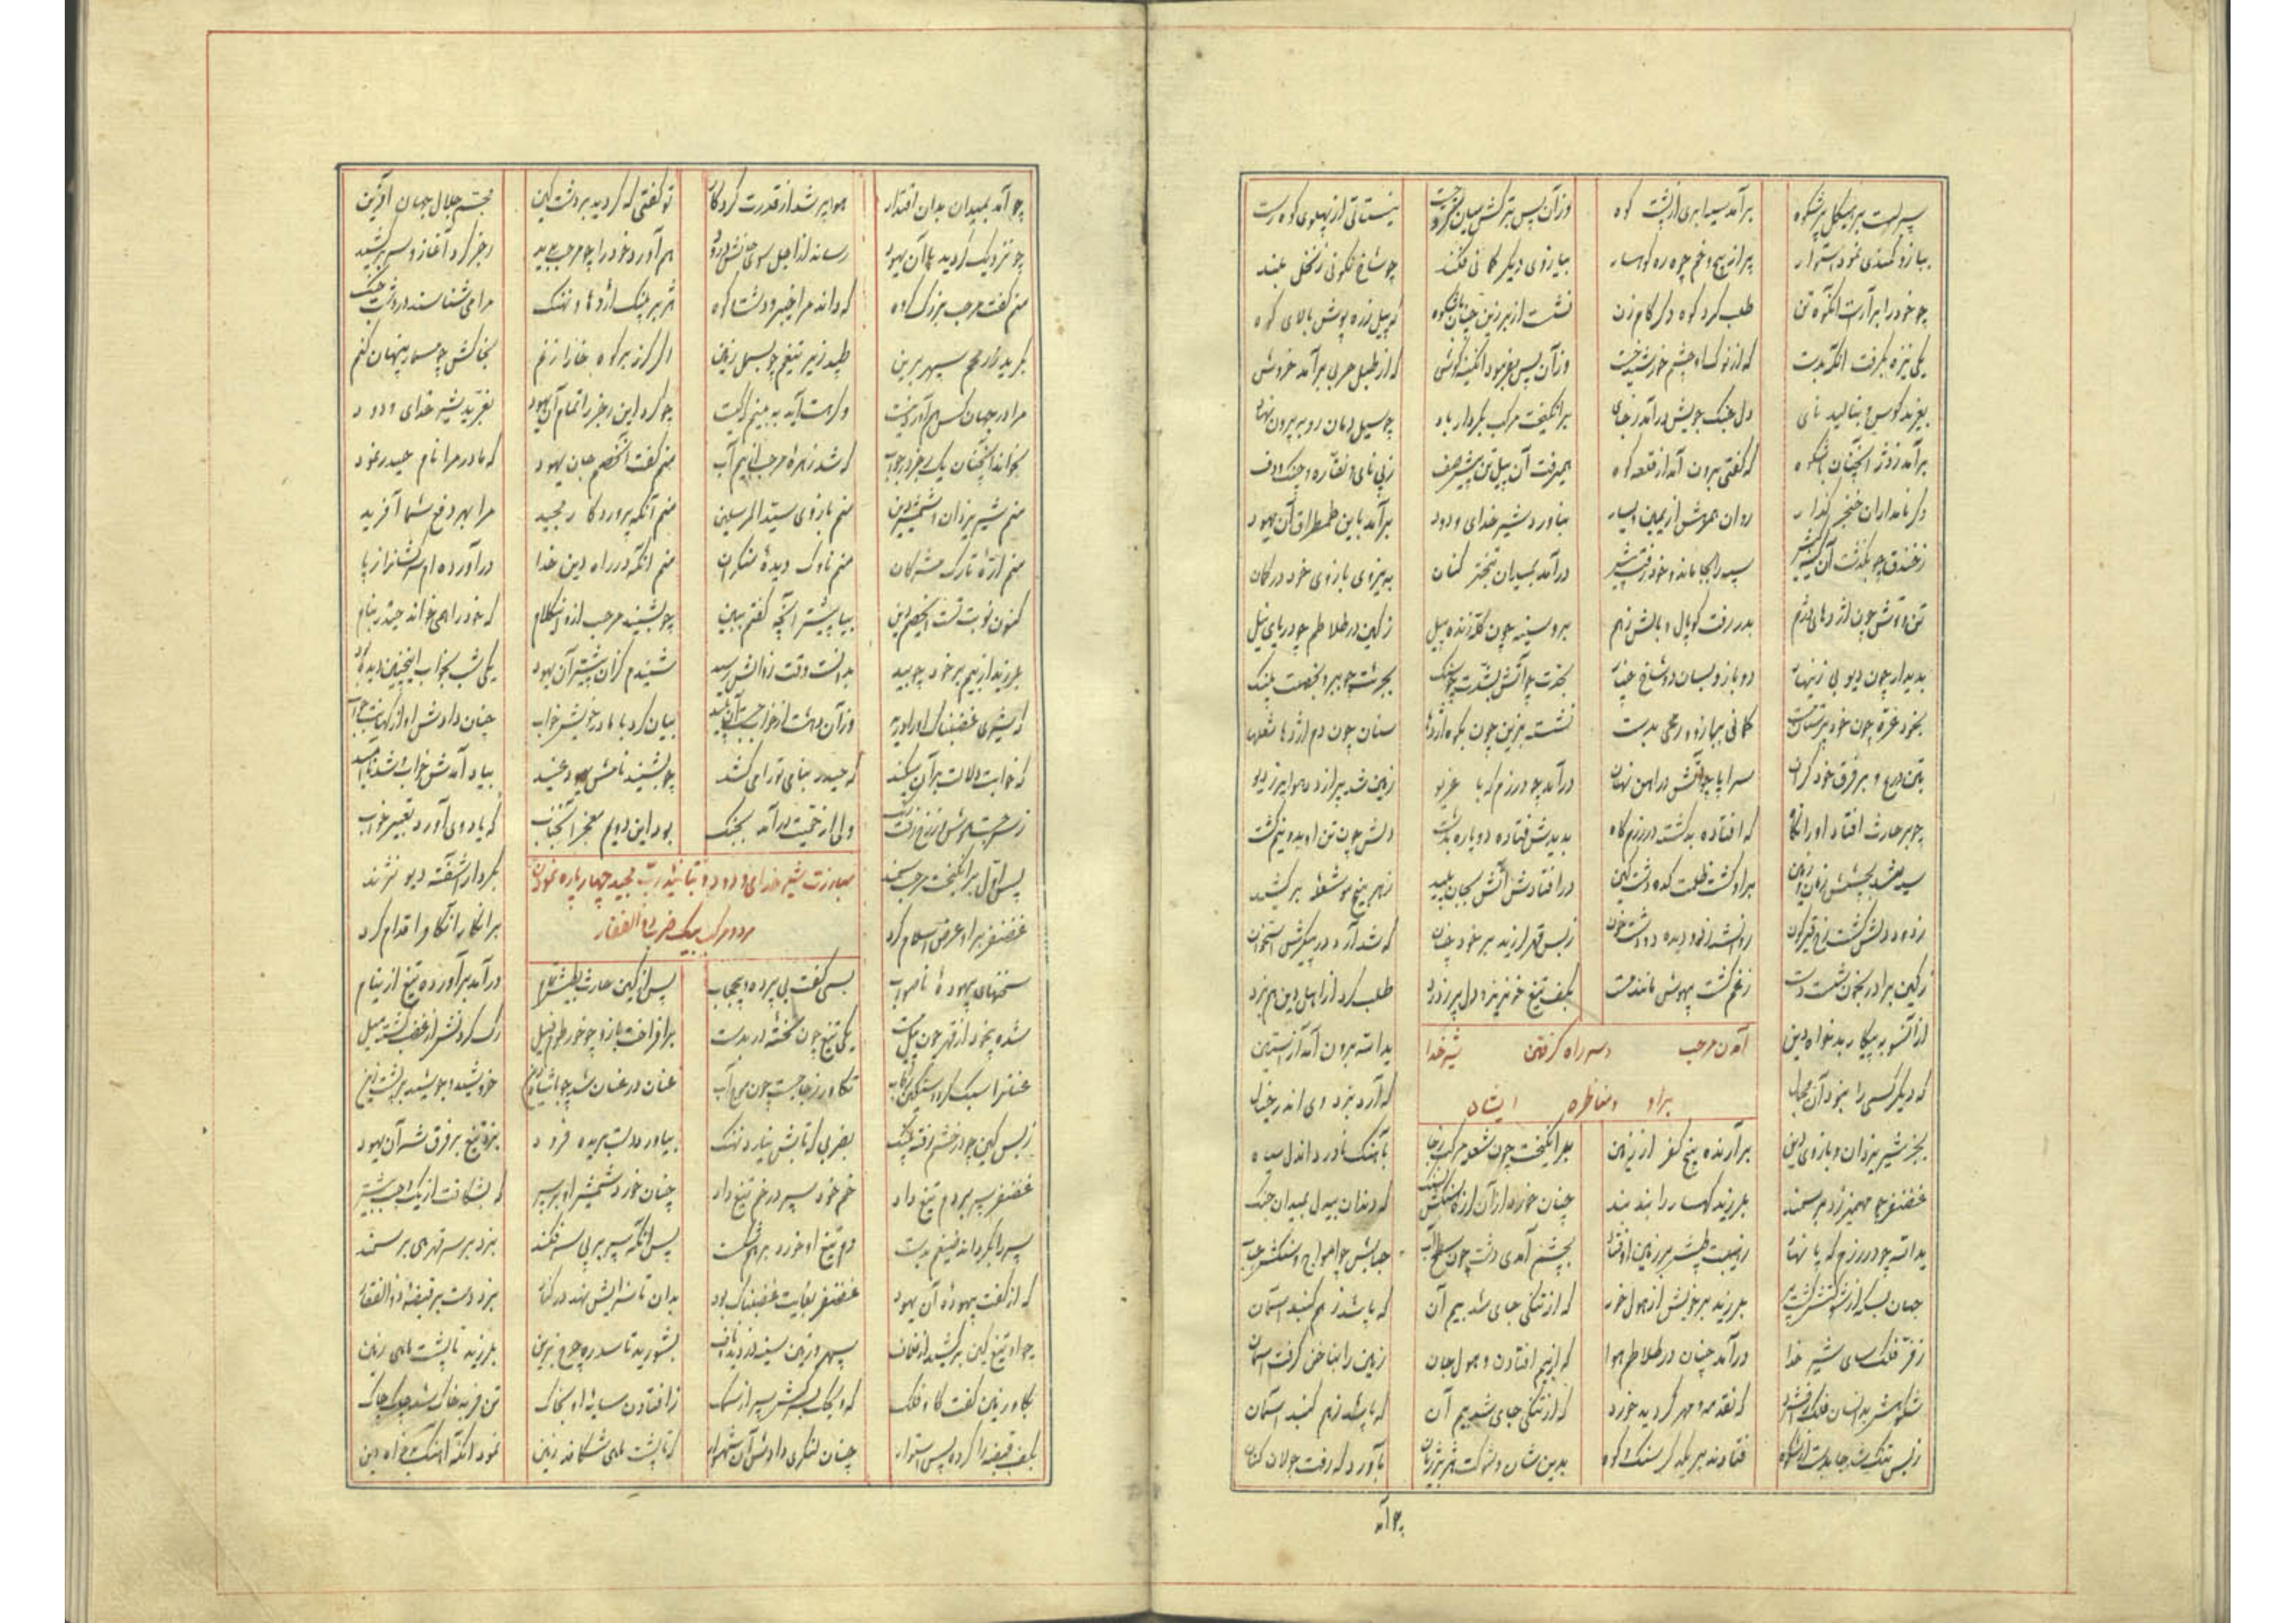 سپر بست بر هیکل پرشکوه برآمد سیه ابری از پشت کوه وزآن پس بترکش میان نیستانی از پهلوی کوه رست
ببازو کمندی نمود استوار پر از پیچ و خم چو ره کوهسار ببازوی دیگر کمانی فکند چو شاخ نکونی ز نخل بلند
چو خود را برآراست آنگونه تن طلب کرد کوه گام زن نشست از بر زین چنان باشکوه که پیل زره پوش بالای کوه
یکی نیزه بگرفت آنگه بدست که از نوک او چشم خورشید خست وزآن پس بفرمود که از طبل حربی برآمد خروش
بغرید کوس و بنالید نای دل جنگ جویش درآمد ز جای برانگیخت مرکب بکردار باد چو سیل دمان رو به بیرون نهاد
برآمد ز دژ آنچنان باشکوه که گفتی برون آمد از قلعه کوه همیرفت آن پیلتن پیش صف ز پی نای و نقاره و چنگ و دف
دگر نامداران خنجر گذار روان همرهش از یمین و یسار بناورد شیر خدای ودود برآمد باین طمطراق آن یهود
ز خندق چو بگذشت آن سپه را بجا ماند و خود رفت پیشتر درآمد بمیدان تبختر کنان به نیروی بازوی خود در گمان
تن و توش چون اژدهای دژم بدر رفت کوپال و بالش ز هم بر و سینه چون کله زنده پیل ز کین در تلاطم چو دریای نیل
بدیدار چون دیو بی زینهار دو بازو بسان دو شاخ چنار بحدت چو آتش بشدت چو سنگ بجرئت چو ببر و بخصمت پلنگ
بخود غره چون خودپرستان مست کمانی ببازو و رمحی بدست نشسته بزین چون بکوه اژدها سنان چون دم اژدها شعله‌ها
بتن درع و بر فرق خود گران سراپا چو آتش در آهن نهان درآمد چو در رزمگه با غریو زمین شد پر از دد هوا پر ز دیو
چو بر حارث افتاد او را نگاه که افتاده بد کشته در رزمگاه بدیدش فتاده دو پاره بدشت دلش چون تن او به دو نیم گشت
سیه شد بچشمش زمان و زمین برو گشت ظلمت کده دشت کین در افتادش آتش بجان پلید ز هر بیخ مو شعله بر کشید
ز دود دلش گشت رخ قیرگون روان شد ز دو دیده دو رود خون ز بس قهر لرزید بر خود چنان که شد آرد در پیکرش استخوان
ز کین برادر بخون شست دست ز غم گشت بیهوش مانند مست بکف تیغ خونریز و دل پر ز درد طلب کرد از اهل دین هم نبرد
از آنسو به پیکار بدخواه دین یدالله برون آمد از آستین
آمدن مرحب و سر راه گرفتن شیر خدا
که دیگر کسی را نبود آن مجال که آرد نبرد وی اندر خیال
براو و مناظره ایشان
بجز شیر یزدان و بازوی دین برآرنده بیخ کفر از زمین برانگیخت چون شعله مرکب ز جا بآهنگ ناورد آندل سیاه
غضنفر چو مهمیز زد بر سمند بلرزید کهسار را بند بند چنان خورد از آن لرزه که دندان بیدل بمیدان جنگ
یدالله چو در رزمگه پا نهاد ز هیبت طپش بر زمین اوفتاد بچشم آمدی دشت چون سطح آب جبالش چو امواج و سنگش حباب
جهان بسکه از شوکتش گشت پر بلرزید بر خویش از هول خور که از تنگی جای شد بیم آن که پاشد ز هم گنبد آسمان
ز فر فلک سای شیر خدا درآمد چنان در تلاطم هوا که از بیم افتادن و هول جان زمین را بناخن گرفت آسمان
شکوهش بدانسان فلک را فشرد که نقد مه و مهر گردید خورد که از تنگی جای شد بیم آن که پاشد ز هم گنبد آسمان
ز بس تنگ شد جا بدشت از شکوه فتادند بر یکدگر سنگ و کوه بدین شان و شوکت هژبر ژیان بآوردگه رفت جولان کنان
چو آمد
چو آمد بمیدان بدان اقتدار هوا پر شد از قدرت کردگار تو گفتی که گردید بر دشت کین مجسم جلال جهان آفرین
چو نزدیک گردید با آن یهود رساند از اجل سوی جانش درود هم آورد خود را چو مرحب بدید رجز کرد آغاز و سر بر کشید
منم گفت مرحب بزرگ گروه که داند مرا خیبر و دشت و کوه هژبر و پلنگ اژدها و نهنگ مرا می‌شناسند در دشت جنگ
بگرید ز رمحم سپهر برین طپد زیر تیغم چو بسمل زمین اگر گرز بر کوه خارا زنم بخاکش چو مسمار پنهان کنم
مرا در جهان کس هم‌آورد نیست وگر هست آید به بینم که کیست چو کرد این رجز را تمام آن یهود بغرید شیر خدای ودود
بخواند آنچنان یک رجز در جواب که شد زهره مرحب از بیم آب منم گفت آن خصم جان یهود که مادر مرا نام حیدر نمود
منم شیر یزدان و شمشیر دین منم بازوی سید المرسلین منم آنکه پروردگار مجید مرا بهر دفع شما آفرید
منم اره تارک مشرکان منم ناوک دیده منکران منم آنکه در راه دین خدا درآورده‌ام سرکشان را ز پا
کنون نوبت تست ای خصم دین بیا پیشتر آنچه گفتم ببین چو بشنید مرحب از او این کلام که خود را همی خواند حیدر بنام
بلرزید از بیم بر خود چو بید بدانست وقت زوالش رسید شنیدم کزان پیشتر آن یهود یکی شب بخواب اینچنین دیده بود
که شیری غضبناک او را درید وزآن دهشت از خواب جست آن پلید بیان کرد با مادر خویش خواب چنان دادش او از کهانت جواب
که خوابت دلالت بر آن میکند که حیدر بنامی تو را می‌کشد چو بشنید نامش یهود عنید بیاد آمدش خواب و شد ناامید
ز سر جست هوش از رخ رفت رنگ ولی از حمیت درآمد بجنگ بود این دویم معجز آنجناب که یاد وی آورد تعبیر خواب
مبارزت شیر خدای ودود و بتأیید رب مجید چهار پاره نمودن
پس اول برانگیخت مرحب سمند بکردار آشفته دیو نژند
مرد و مرکب بیک ضرب ذوالفقار
غضنفر بر او عرض اسلام کرد بر انکار آنگاه اقدام کرد
سخنهای بیهوده ناصواب بسی گفت بی پرده و بی حجاب پس از کین حارث درآمد برآورده تیغ از نیام
شده بیخود از قهر چون پیل مست یکی تیغ چون تخته در بدست برافراخت بازو چو خرطوم فیل رگ گردنش از غضب گشته میل
عنان را سبک کرد و سنگین رکاب تکاور ز جا جست چون موج آب عنان در عنان شد خروشید و جوشید بر پشت زین
ز بس کین چو در خشم رفته پلنگ بضربی که تابش نیارد نهنگ بیاورد دست بریده فرود بزد تیغ بر فرق شه آن یهود
غضنفر سپر بر دم تیغ داد خم خود سپر در خم تیغ داد چنان خورد شمشیر او بر سپر که بشکافت از یک وجب بیشتر
سپر را بگرداند ضیغم بدست دم تیغ او خورد بر هم شکست پس آنگه سپر بر پی سر فکند بزد بر سر قهر هی بر سمند
که از گفت بیهوده آن یهود غضنفر بغایت غضبناک بود بدان تا سزایش نهد در کنار بزد دست بر قبضه ذوالفقار
چو او تیغ کین بر کشید از غلاف سپهر و زمین سینه دزدید و ناف بشورید تا سدره چرخ برین بلرزید تا پشت ماهی زمین
بگاو زمین گفت گاو فلک که ویحک بسر کش سپر از سمک ز افتادن سایه او بخاک تن فربه خاک شد چاک چاک
بکف قبضه را کرده پس استوار چنان لنگری دادش آن شهسوار که تا پشت ماهی شکافد زمین نمود آنگه آهنگ بدخواه دین